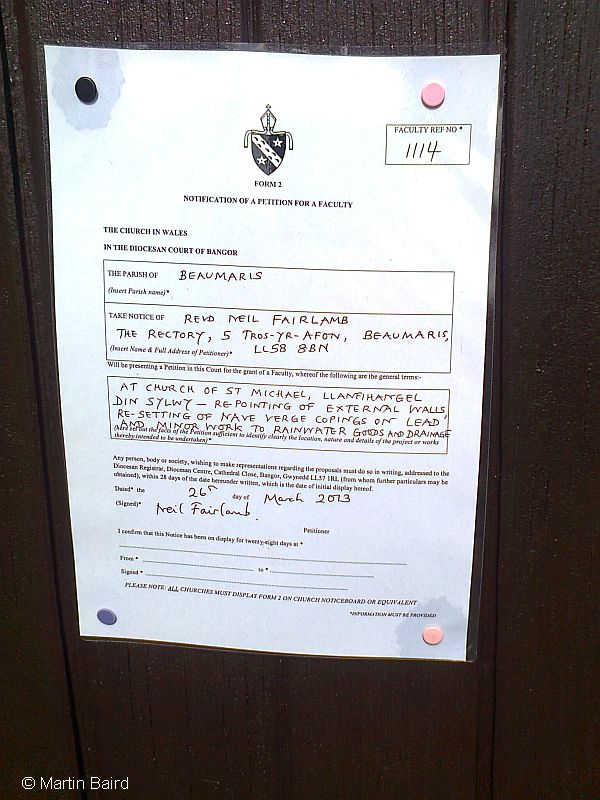 FACULTY REF NO *
1114
FORM 2
NOTIFICATION OF A PETITION FOR A FACULTY
THE CHURCH IN WALES
IN THE DIOCESAN COURT OF BANGOR
THE PARISH OF BEAUMARIS
(Insert Parish name)*
TAKE NOTICE OF REVD NEIL FAIRLAMB
THE RECTORY, 5 TROS-YR-AFON, BEAUMARIS,
(Insert Name & Full Address of Petitioner)* LL58 8BN
Will be presenting a Petition in this Court for the grant of a Faculty, whereof the following are the general terms:-
AT CHURCH OF ST MICHAEL, LLANFIHANGEL
DIN SYLWY – REPOINTING OF EXTERNAL WALLS,
RE-SETTING OF NAVE VERGE COPINGS ON LEAD,
AND MINOR WORK TO RAINWATER GOODS AND DRAINAGE
(here set out the facts of the Petition sufficient to identify clearly the location, nature and details of the project or works
thereby intended to be undertaken)*
Any person, body or society, wishing to make representations regarding the proposals must do so in writing, addressed to the
Diocesan Registrar, Diocesan Centre, Cathedral Close, Bangor, Gwynedd LL57 1RL (from whom further particulars may be
obtained), within 28 days of the date hereunder written, which is the date of initial display hereof.
Dated* the 26th day of March 2013
(Signed)* Neil Fairlamb.
Petitioner
I confirm that this Notice has been on display for twenty-eight days at *
From * to *
Signed *
PLEASE NOTE: ALL CHURCHES MUST DISPLAY FORM 2 ON CHURCH NOTICEBOARD OR EQUIVALENT
*INFORMATION MUST BE PROVIDED
© Martin Baird